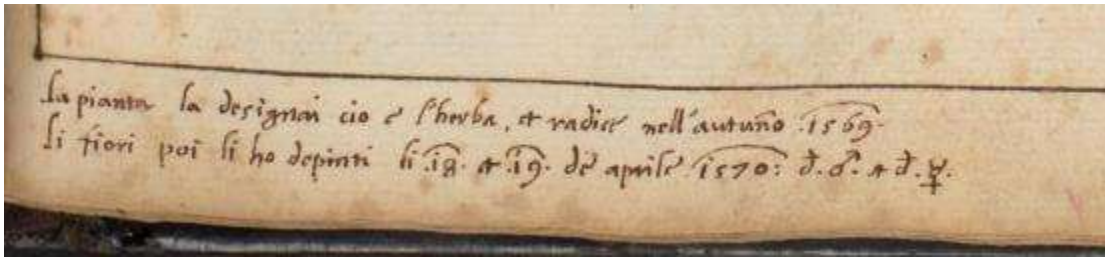 La pianta la designai cio è l'herba, et radice nell'autuño .1569.
li fiori poi li ho depinti li .18. et .19. de aprile 1570: d. ♂. et d. ☿.